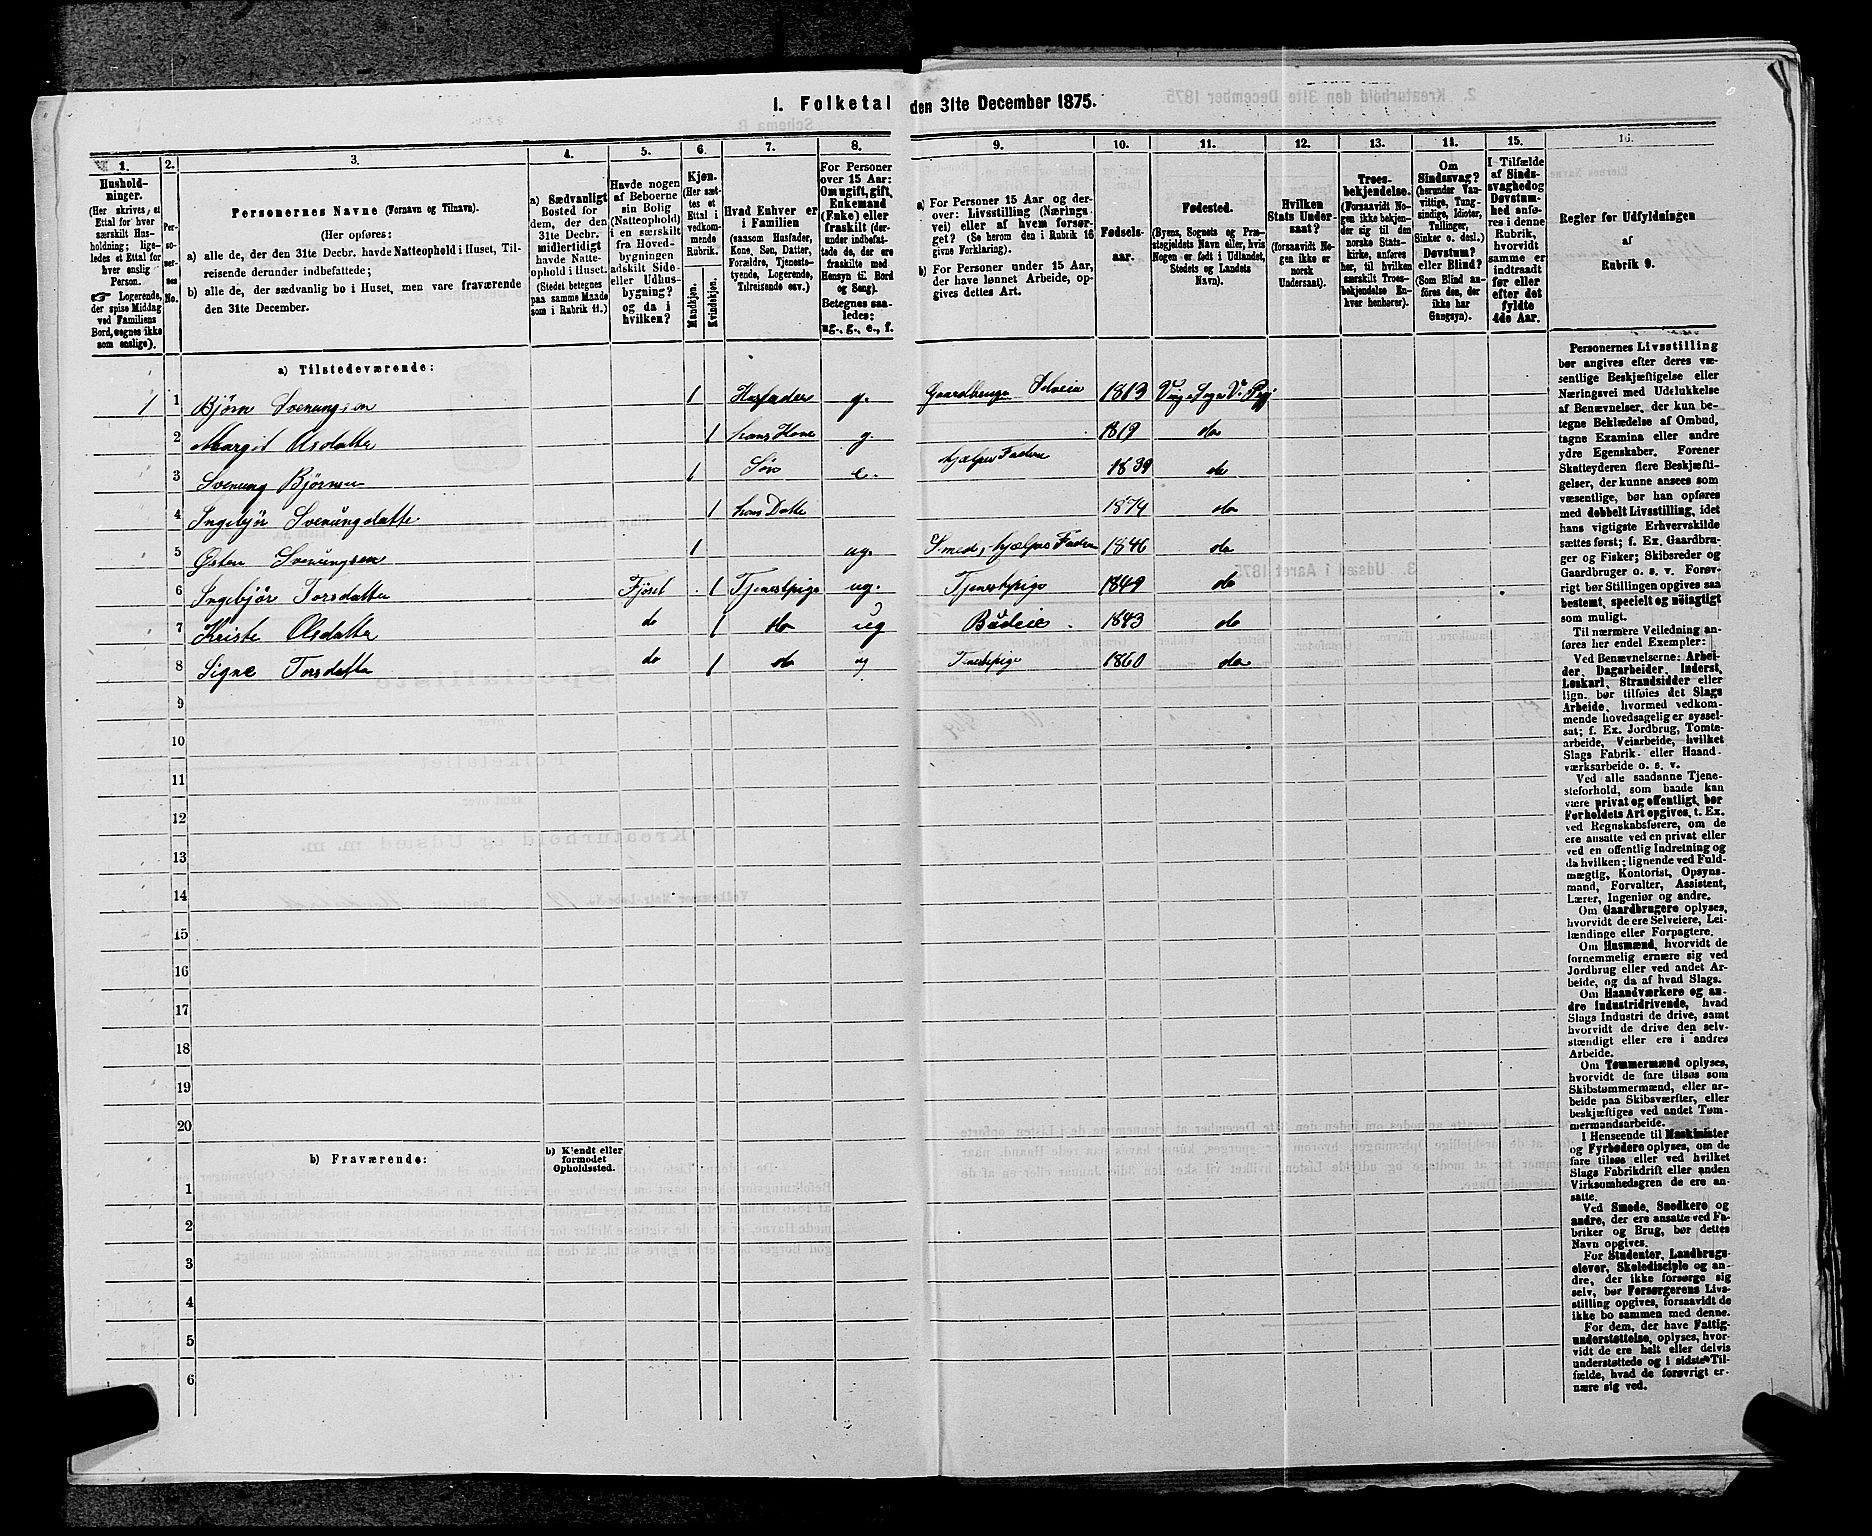 1. Folketal den 31te December 1875.
1.
2.
3.
4.
5.
6.
7.
8.
9.
10.
11.
12.
13.
14.
15.
16.
Hushold-
ninger.
(Her skrives, et
Ettal for hver
særskilt Hus-
holdning; lige-
ledes et Ettal for
hver enslig
Person.
☞ Logerende,
der spise Middag
ved Familiens
Bord, regnes ikke
som enslige).
Per-
so-
ner-
nes
No.
Personernes Navne (Fornavn og Tilnavn).
(Her opføres:
a) alle de, der den 31te Decbr. havde Natteophold i Huset, Til-
reisende derunder indbefattede;
b) alle de, der sædvanlig bo i Huset, men vare fraværende
den 31te December.
a) Sædvanligt
Bosted for
dem, der den
31te Decbr.
midlertidigt
havde Natte-
ophold i Huset.
(Stedet betegnes
paa samme Maade
som i Rubrik 11.)
Havde nogen
af Beboerne
sin Bolig
(Natteophold)
i en særskilt
fra Hoved-
bygningen
adskilt Side-
eller Udhus-
bygning?
og da i
hvilken?
Kjøn.
(Her sæt-
tes et
Ettal i
vedkom-
mende
Rubrik.)
Mandkjøn.
Kvindekjøn.
Hvad Enhver er
i Familien
(saasom Husfader,
Kone, Søn, Datter,
Forældre, Tjeneste-
tyende, Logerende,
Tilreisende osv.)
For Personer
over 15 Aar:
Om ugift, gift,
Enkemand
(Enke) eller
fraskilt (der-
under indbefat-
tede de, der ere
fraskilte med
Hensyn til Bord
og Seng).
Betegnes saa-
ledes:
ug., g., e., f.
a) For Personer 15 Aar og der-
over: Livsstilling (Nærings-
vei) eller af hvem forsør-
get? (Se herom den i Rubrik 16
givne Forklaring).
b) For Personer under 15 Aar,
der have lønnet Arbeide, op-
gives dettes Art.
Fødsels-
aar.
Fødested.
(Byens, Sognets og Præ-
stegjeldets Navn eller, hvis
Nogen er født i Udlandet,
Stedets og Landets
Navn).
Hvilken
Stats Under-
saat?
(forsaavidt No-
gen ikke er
norsk
Undersaat).
Troes-
bekjendelse.
(Forsaavidt No-
gen ikke bekjen-
der sig til den
norske Stats-
kirke, anføres
her, til hvilken
særskilt Troes-
bekjendelse En-
hver henhører).
Om
Sindssvag?
(herunder Van-
vittige, Tung-
sindige, Idioter,
Tullinger,
Sinker o. desl.)
Døvstum?
eller Blind?
(Som Blind an-
føres den, der
ikke har
Gangsyn).
I Tilfælde
af Sinds-
svaghed og
Døvstum-
hed anfø-
res i denne
Rubrik,
hvorvidt
samme er
indtraadt
før eller
efter det
fyldte
4de Aar.
Regler for Udfyldningen
af
Rubrik 9.
a) Tilstedeværende:
1 1 Bjørn Svenungsen 1 Husfader g. Gaardbruger Selveier 1813
2 Margit Olsdatter 1 hans Kone g. 1819 do
3 Svenung Bjørnsen 1 Søn e. hjælper Faderen 1839 do
4 Ingebjør Svenungdatte 1 hans Datte 1874 do
5 Østen Svenungsen 1 ug. Smed, hjælper Faderen 1846 do
6 Ingebjør Torsdatter Fjøset 1 Tjenestpige ug. Tjenestpige 1849 do
7 Kriste Olsdatte do 1 do ug Budeie 1843 do
8 Signe Torsdatte do 1 do ug 1860 do
9
10
11
12
13
14
15
16
17
18
19
20
b) Fraværende:
b) Kjendt eller
formodet
Opholdssted.
1
2
3
4
5
6
Personernes Livsstilling
bør angives efter deres væ-
sentlige Beskjæftigelse eller
Næringsvei med Udelukkelse
af Benævnelser, der kun be-
tegne Beklædelse af Ombud,
tagne Examina eller andre
ydre Egenskaber. Forener
Skatteyderen flere Beskjæfti-
gelser, der kunne ansees som
væsentlige, bør han opføres
med dobbelt Livsstilling, idet
hans vigtigste Erhvervskilde
sættes først; f. Ex. Gaardbru-
ger og Fisker; Skibsreder og
Gaardbruger o. s. v. Forøv-
rigt bør Stillingen opgives saa
bestemt, specielt og nøiagtigt
som muligt.
Til nærmere Veiledning an-
føres her endel Exempler:
Ved Benævnelserne: Arbei-
der, Dagarbeider, Inderst,
Løskarl, Strandsidder eller
lign. bør tilføies det Slags
Arbeide, hvormed vedkom-
mende hovedsagelig er syssel-
sat; f. Ex. Jordbrug, Tomte-
arbeide, Veiarbeide, hvilket
Slags Fabrik- eller Haand-
værksarbeide o. s. v.
Ved alle saadanne Tjene-
steforhold, som baade kan
være privat og offentligt, bør
Forholdets Art opgives, t. Ex.
ved Regnskabsførere, om de
ere ansatte ved en privat eller
ved en offentlig Indretning og
da hvilken; lignende ved Fuld-
mægtig, Kontorist, Opsyns-
mand, Forvalter, Assistent,
Lærer, Ingeniør og andre.
Om Gaardbrugere oplyses,
hvorvidt de ere Selveiere, Lei-
lændinge eller Forpagtere.
Om Husmænd, hvorvidt de
fornemmelig ernære sig ved
Jordbrug eller ved andet Ar-
beide, og da af hvad Slags.
Om Haandværkere og an-
dre Industridrivende, hvad
Slags Industri de drive, samt
hvorvidt de drive den selv-
stændigt eller ere i andres
Arbeide.
Om Tømmermænd oplyses,
hvorvidt de fare tilsøs som
Skibstømmermænd, eller ar-
beide paa Skibsværfter, eller
beskjæftiges ved andet Tøm-
mermandsarbeide.
I Henseende til Maskinister
og Fyrbødere oplyses, om de
fare tilsøs eller ved hvilket
Slags Fabrikdrift eller anden
Virksomhedsgren de ere an-
satte.
Ved Smede, Snedkere og
andre, der ere ansatte ved Fa-
briker og Brug, bør dettes
Navn opgives.
For Studenter, Landbrugs-
elever, Skoledisciple og an-
dre, der ikke forsørge sig
selv, bør Forsørgerens Livs-
stilling opgives, forsaavidt de
ikke bo sammen med denne.
For dem, der have Fattig-
understøttelse, oplyses, hvor-
vidt de ere helt eller delvis
understøttede og i sidste Til-
fælde, hvad de forøvrigt er-
nære sig ved.